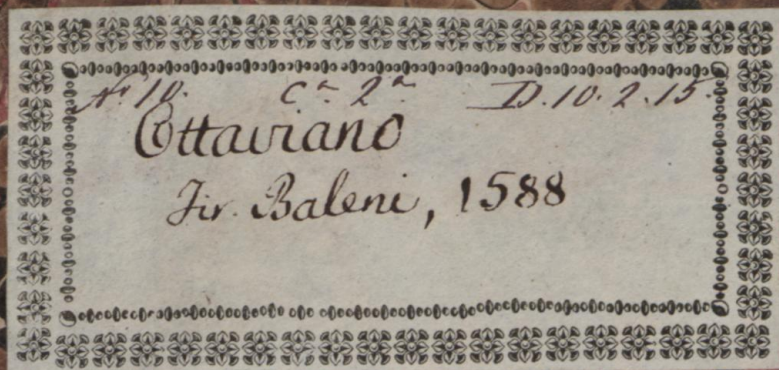 Nº 10. Cª 2ª D. 10. 2. 15.
Ottaviano
Fir. Baleni, 1588